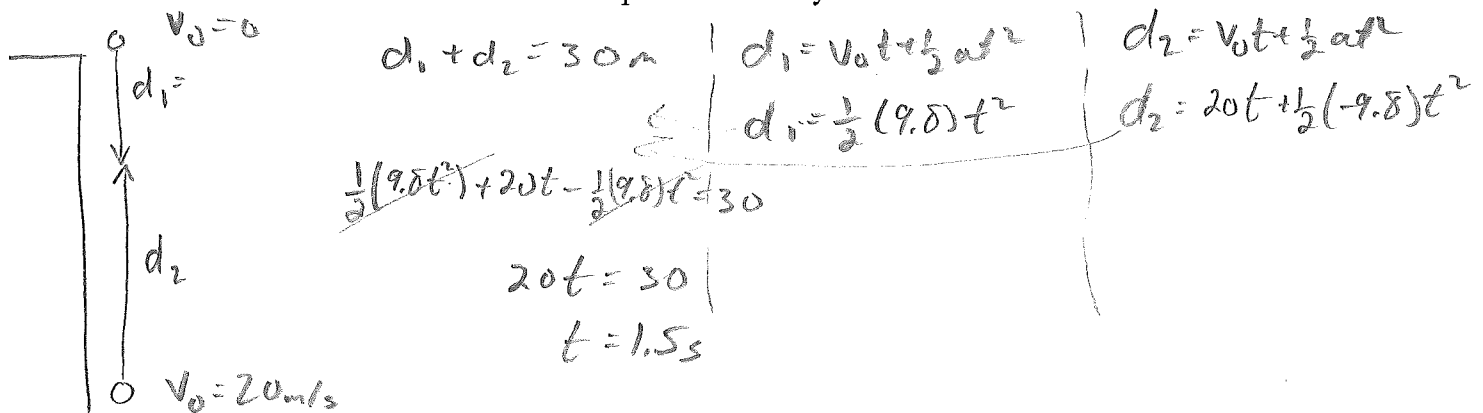 V₀=0
d₁=
d₂
V₀=20m/s
d₁+d₂=30m
½(9.8t²)+20t-½(9.8)t²=30
20t=30
t=1.5s
d₁=V₀t+½at²
d₁=½(9.8)t²
d₂=V₀t+½at²
d₂=20t+½(-9.8)t²